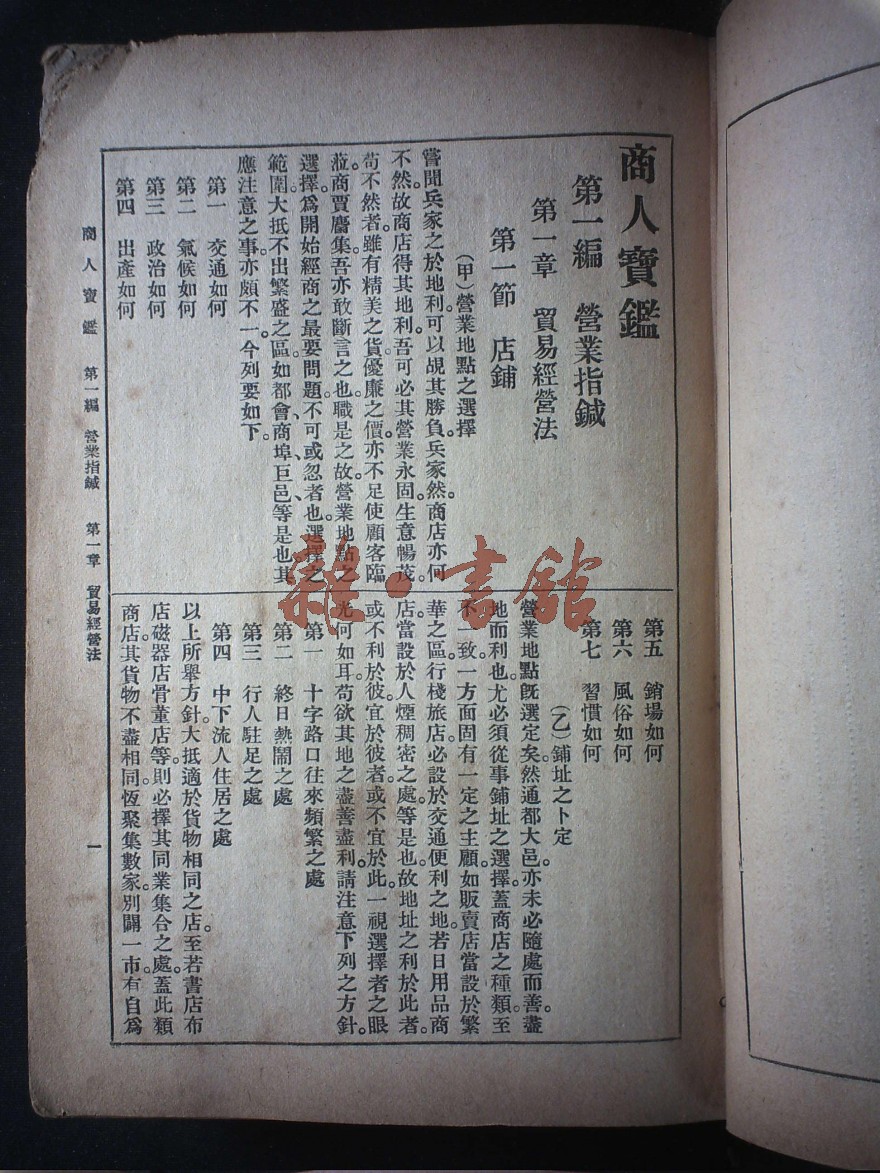 商人寶鑑
第一編　營業指鍼
第一章　貿易經營法
第一節　店鋪
（甲）營業地點之選擇
嘗聞兵家之於地利。可以覘其勝負。兵家然。商店亦何
不然。故商店得其地利。吾可必其營業永固。生意暢茂。
苟不然者。雖有精美之貨。優廉之價。亦不足使顧客臨
蒞。商賈麕集。吾亦敢斷言之也。職是之故。營業地點之
選擇。爲開始經商之最要問題。不可或忽者也。選擇之
範圍。大抵不出繁盛之區。如都會、商埠、巨邑、等是也。其
應注意之事。亦頗不一。今列要如下。
第一　交通如何
第二　氣候如何
第三　政治如何
第四　出產如何
第五　銷場如何
第六　風俗如何
第七　習慣如何
（乙）鋪址之卜定
營業地點旣選定矣。然通都大邑。亦未必隨處而善。盡
地而利也。尤必須從事鋪址之選擇。蓋商店之種類。至
不一致。一方面固有一定之主顧。如販賣店當設於繁
華之區。行棧旅店。必設於交通便利之地。若日用品商
店。當設於人煙稠密之處。等是也。故地址之利於此者。
或不利於彼。宜於彼者。或不宜於此。一視選擇者之眼
光何如耳。苟欲其地之盡善盡利。請注意下列之方針。
第一　十字路口往來頻繁之處
第二　終日熱鬧之處
第三　行人駐足之處
第四　中下流人住居之處
以上所舉方針。大抵適於貨物相同之店。至若書店布
店磁器店骨董店等。則必擇其同業集合之處。蓋此類
商店。其貨物不盡相同。恆聚集數家。別闢一市。有自爲
商人寶鑑　第一編　營業指鍼　第一章　貿易經營法
一
雜·書館